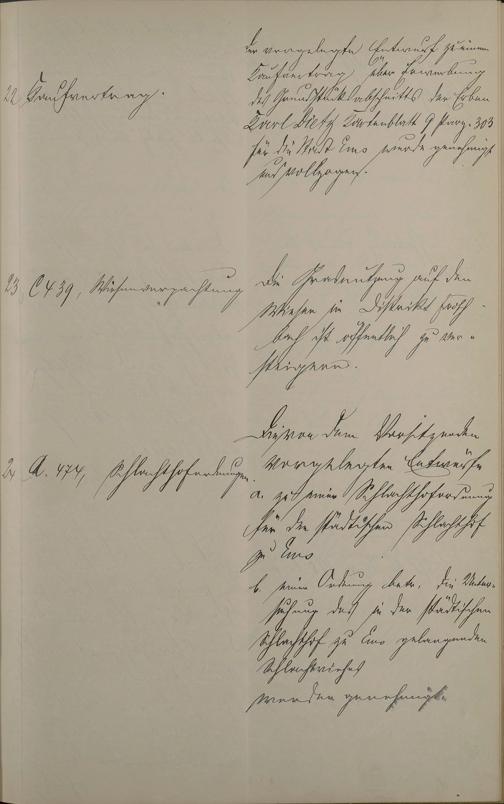 22 Kaufvertrag.
Der vorgelegte Entwurf zu einem
Kaufvertrag über Erwerbung
des Grundstücksabschnitts der Erben
Karl Dietz Kartenblatt 9 Parz. 303
für die Stadt Ems wurde genehmigt
und vollzogen.
23 C 439, Wiesenverpachtung
Die Grasnutzung auf den
Wiesen in Distrikt
bach ist öffentlich zu ver-
steigern.
24 A. 474, Schlachthofordnungen.
Die von dem Vorsitzenden
vorgelegten Entwürfe
a. zu einer Schlachthofordnung
für den städtischen Schlachthof
zu Ems
b. einer Ordnung betr. die Unter-
suchung des in den städtischen
Schlachthof zu Ems gelangenden
Schlachtviehes
werden genehmigt.